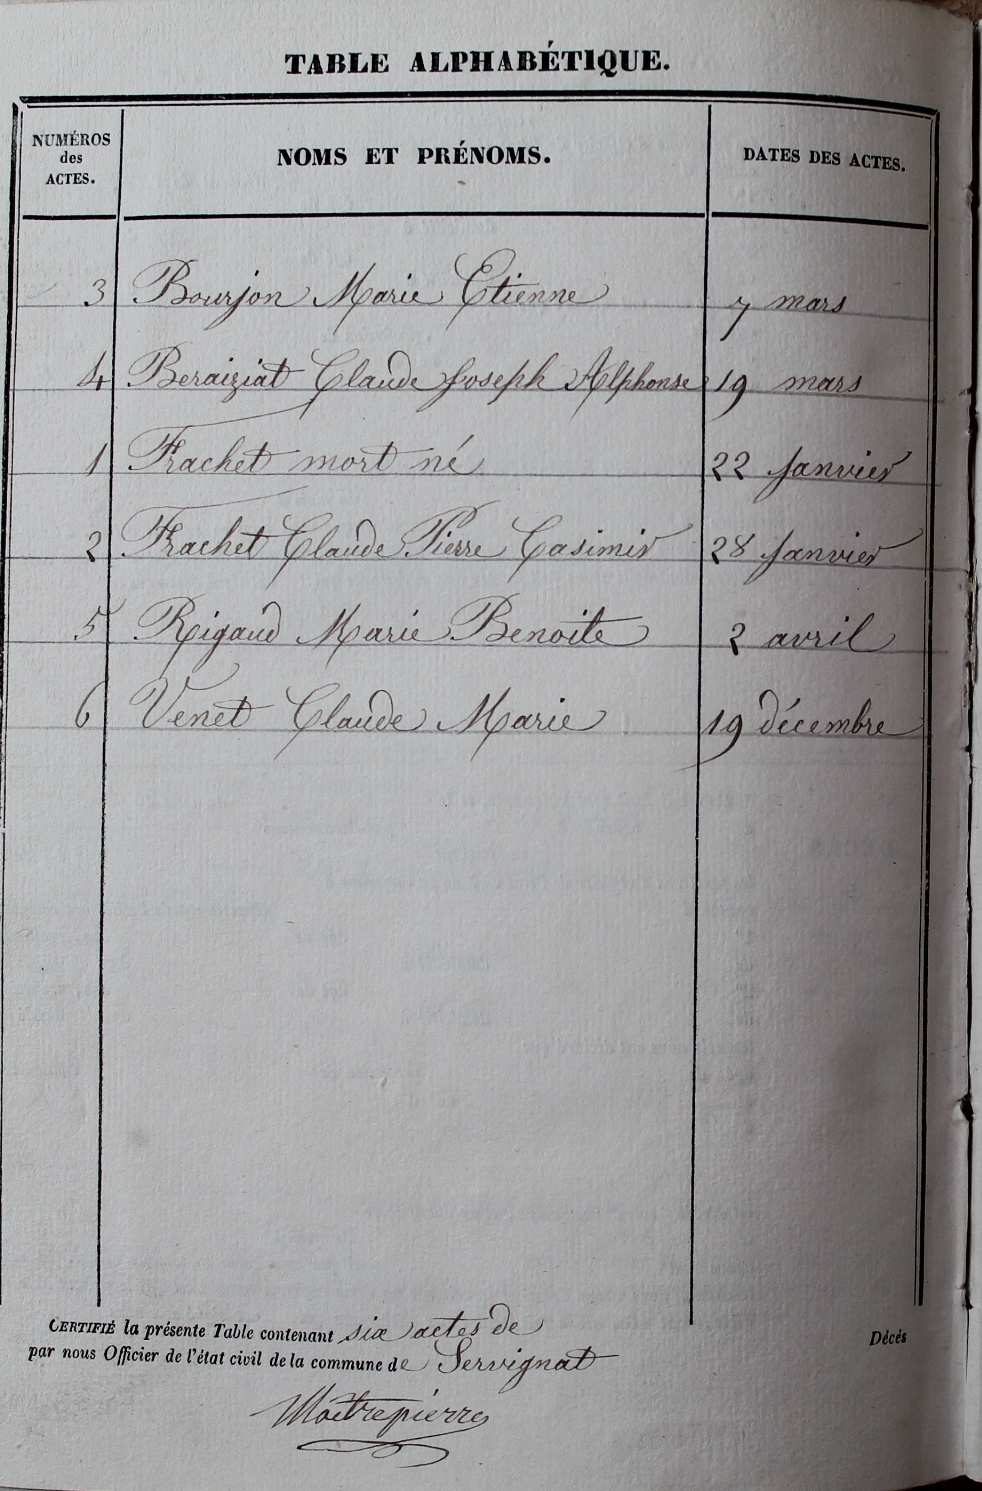 TABLE ALPHABÉTIQUE.
NUMÉROS des ACTES. NOMS ET PRÉNOMS. DATES DES ACTES.
3 Bourjon Marie Etienne 7 mars
4 Beraiziat Claude Joseph Alphonse 19 mars
1 Frachet mort né 22 Janvier
2 Frachet Claude Pierre Casimir 28 Janvier
5 Rigaud Marie Benoite 2 avril
6 Venet Claude Marie 19 décembre
CERTIFIÉ la présente Table contenant six actes de Décés
par nous Officier de l'état civil de la commune de Servignat
Maitrepierre